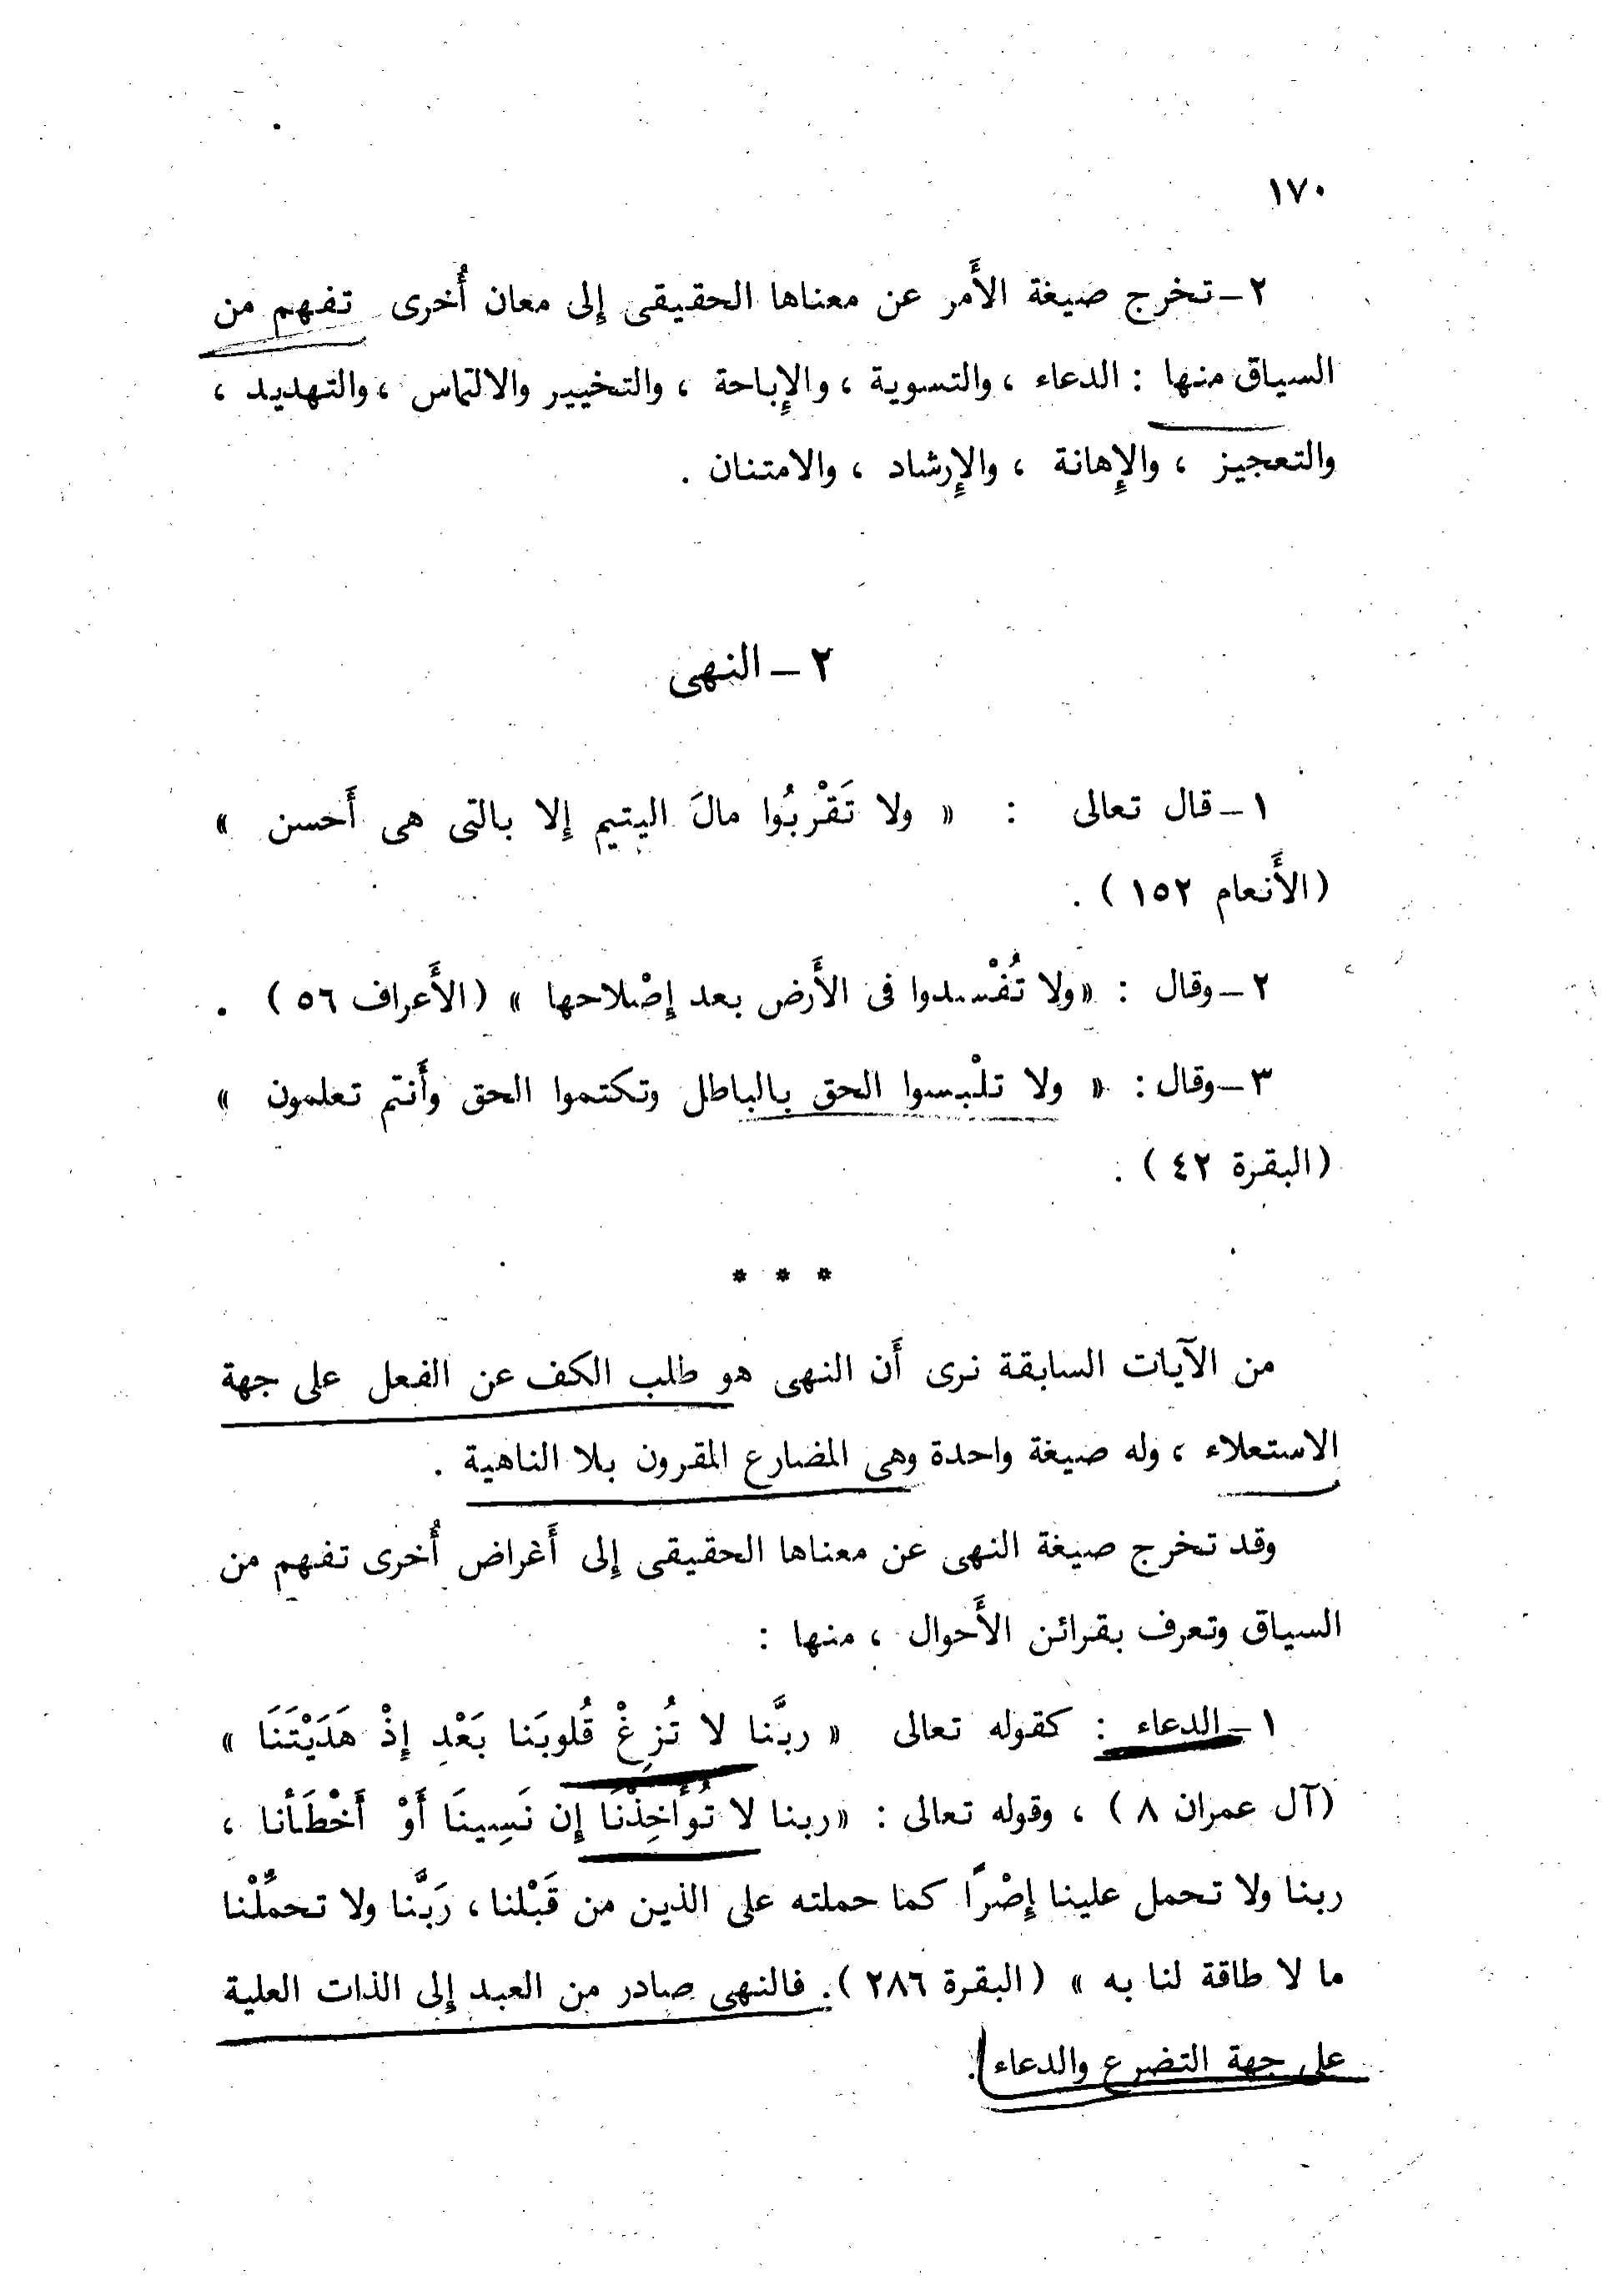 ١٧٠
٢ــ تخرج صيغة الأَمر عن معناها الحقيقى إِلى معان أُخرى تفهم من
السياق منها : الدعاء ، والتسوية ، والإِباحة ، والتخيير والالتماس ، والتهديد ،
والتعجيز ، والإِهانة ، والإِرشاد ، والامتنان .
٢ ــ النهى
١ــ قال تعالى : « ولا تَقْربُوا مالَ اليتيم إِلا بالتى هى أَحسن »
(الأَنعام ١٥٢ ) .
٢ــ وقال : «ولا تُفْسدوا فى الأَرض بعد إِصْلاحها » (الأَعراف ٥٦ ) .
٣ــ وقال : « ولا تلْبسوا الحق بالباطل وتكتموا الحق وأَنتم تعلمون »
(البقرة ٤٢ ) .
* * *
من الآيات السابقة نرى أَن النهى هو طلب الكف عن الفعل على جهة
الاستعلاء ، وله صيغة واحدة وهى المضارع المقرون بلا الناهية .
وقد تخرج صيغة النهى عن معناها الحقيقى إِلى أَغراض أُخرى تفهم من
السياق وتعرف بقرائن الأَحوال ، منها :
١ــ الدعاء : كقوله تعالى « ربَّنا لا تُزِغْ قُلوبَنا بَعْدِ إِذْ هَدَيْتَنَا »
(آل عمران ٨ ) ، وقوله تعالى : «ربنا لا تُوَأَخِذْنَا إِن نَسِينَا أَوْ أَخْطَأْنا ،
ربنا ولا تحمل علينا إِصْرًا كما حملته على الذين من قَبْلنا ، رَبَّنا ولا تحمِّلْنا
ما لا طاقة لنا به » (البقرة ٢٨٦ ). فالنهى صادر من العبد إِلى الذات العلية
على جهة التضرع والدعاء .